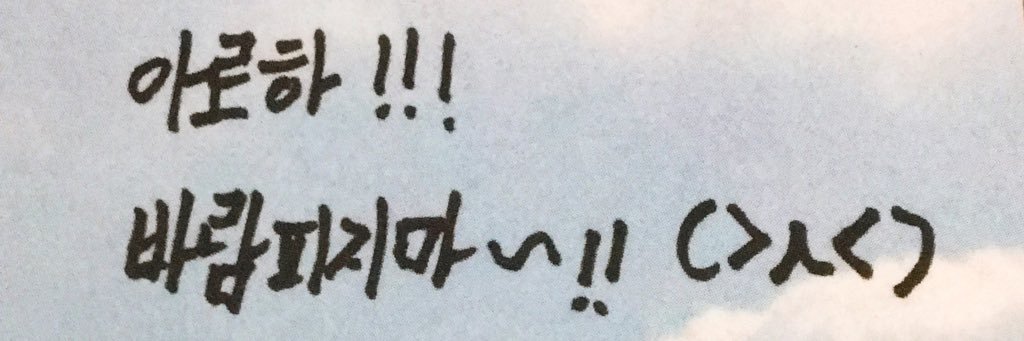 아로하 !!!
바람피지마~!! (>ㅅ<)